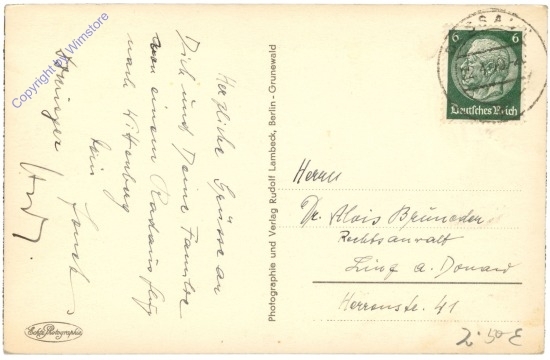 Herzliche Grüsse an
Dich und Deine Familie
von einem Radausflug
nach Wittenberg
Dein
Photographie und Verlag Rudolf Lambeck, Berlin - Grunewald
6 6
Deutsches Reich
Herrn
Dr. Alois
Rechtsanwalt
Linz a. Donau
Herrenstr. 41
2.50 €
Echte Photographie
Copyright by Wimstore